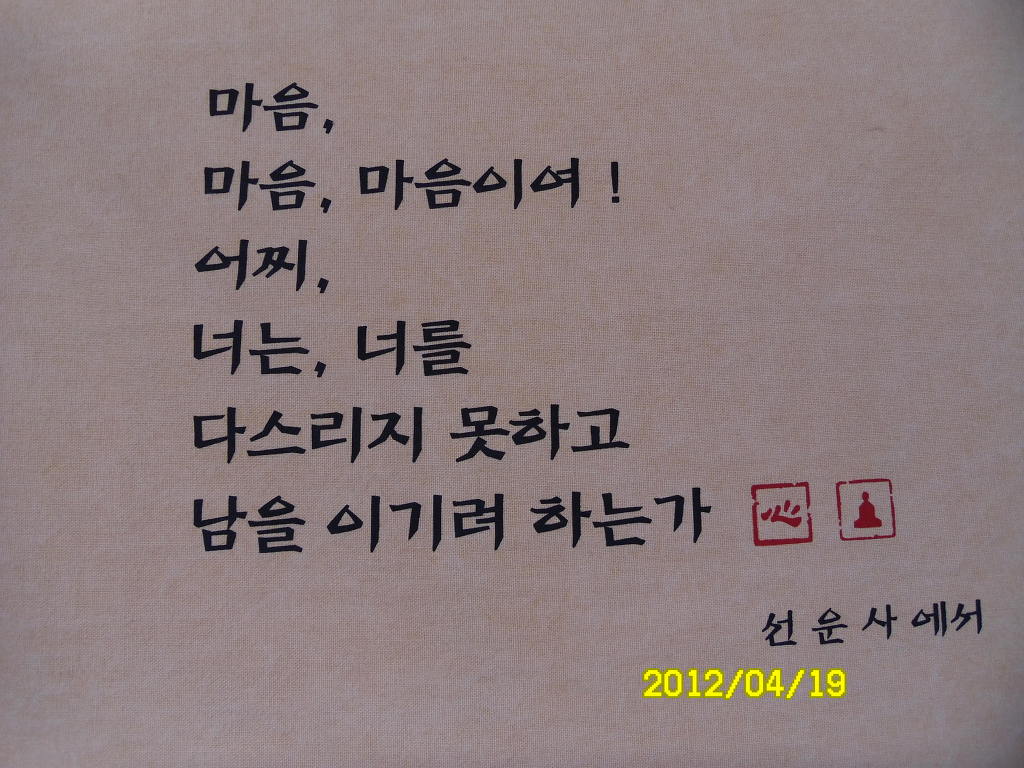 마음,
마음, 마음이여 !
어찌,
너는, 너를
다스리지 못하고
남을 이기려 하는가 心
선운사에서
2012/04/19